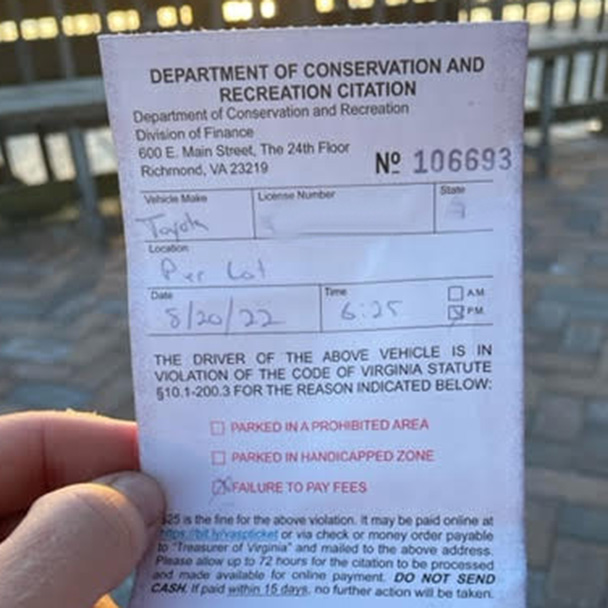 DEPARTMENT OF CONSERVATION AND
RECREATION CITATION
Department of Conservation and Recreation
Division of Finance
600 E. Main Street, The 24th Floor
Richmond, VA 23219
Nº 106693
Vehicle Make
License Number
State
Toyota
Location
Lot
Date
Time
A.M.
8/20/22
6:25
P.M.
THE DRIVER OF THE ABOVE VEHICLE IS IN
VIOLATION OF THE CODE OF VIRGINIA STATUTE
§10.1-200.3 FOR THE REASON INDICATED BELOW:
PARKED IN A PROHIBITED AREA
PARKED IN HANDICAPPED ZONE
FAILURE TO PAY FEES
$25 is the fine for the above violation. It may be paid online at
https://bit.ly/vaspticket or via check or money order payable
to "Treasurer of Virginia" and mailed to the above address.
Please allow up to 72 hours for the citation to be processed
and made available for online payment. DO NOT SEND
CASH. If paid within 15 days, no further action will be taken.